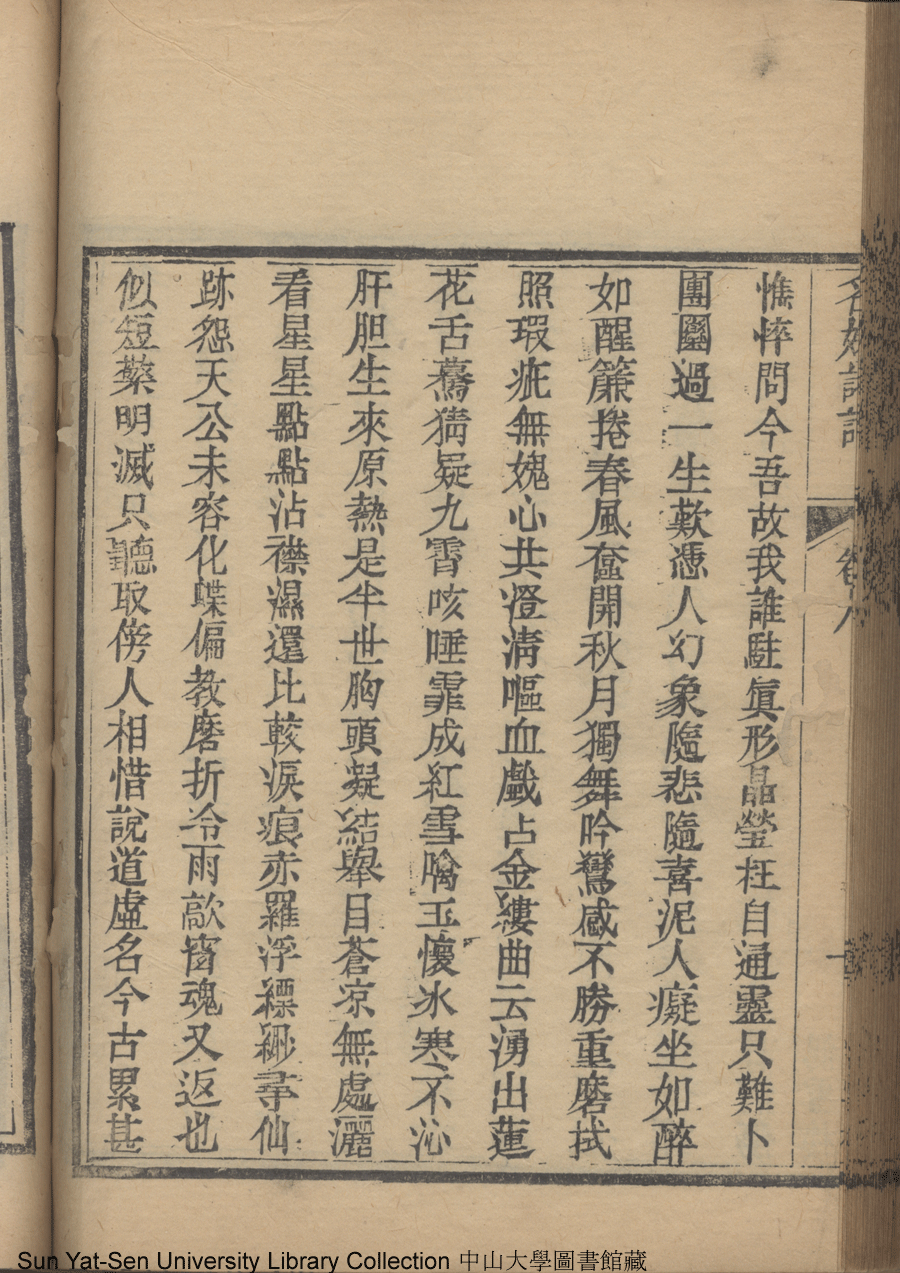 名媛詩話 卷八
憔悴問今吾故我誰駐眞形晶瑩枉自通靈只難卜
團圞過一生歎憑人幻象隨悲隨喜泥人癡坐如醉
如醒簾捲春風奩開秋月獨舞吟鸞感不勝重磨拭
照瑕疵無媿心共澄清嘔血戲占金縷曲云湧出蓮
花舌驀猜疑九霄咳唾霏成紅雪噙玉懷冰寒不沁
肝胆生來原熱是半世胸頭凝結舉目蒼凉無處灑
看星星點點沾襟濕還比較淚痕赤羅浮縹緲尋仙
跡怨天公未容化蝶偏教磨折冷雨敲窗魂又返也
似短檠明滅只聽取傍人相惜說道虛名今古累甚
Sun Yat-Sen University Library Collection 中山大學圖書館藏